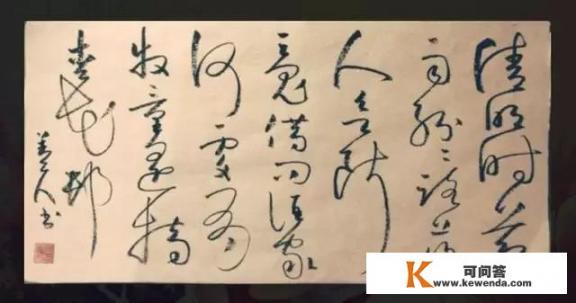 清明时节
雨纷〻路上行
人欲断
魂借问酒家
何处有
牧童遥指
杏花村
人书
可问答
www.kewenda.com